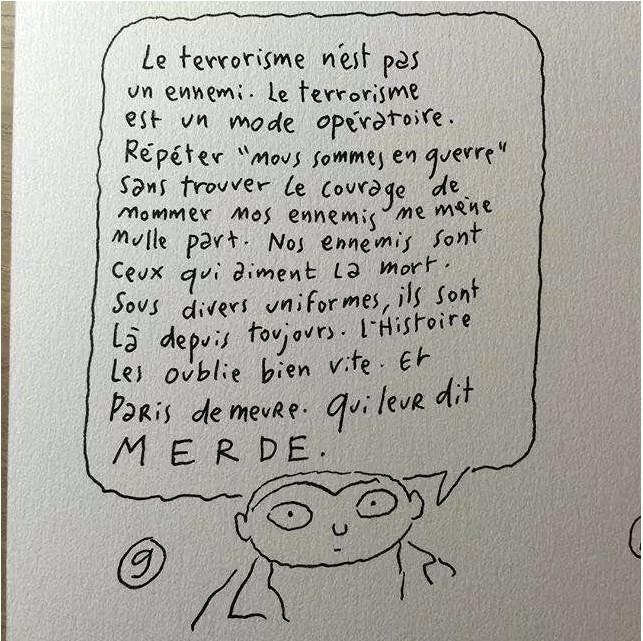 Le terrorisme n'est pas
un ennemi. Le terrorisme
est un mode opératoire.
Répéter "nous sommes en guerre"
sans trouver le courage de
nommer nos ennemis ne mène
nulle part. Nos ennemis sont
ceux qui aiment la mort.
Sous divers uniformes, ils sont
là depuis toujours. l'Histoire
les oublie bien vite. Et
PARIS demeure. qui leur dit
MERDE.
9